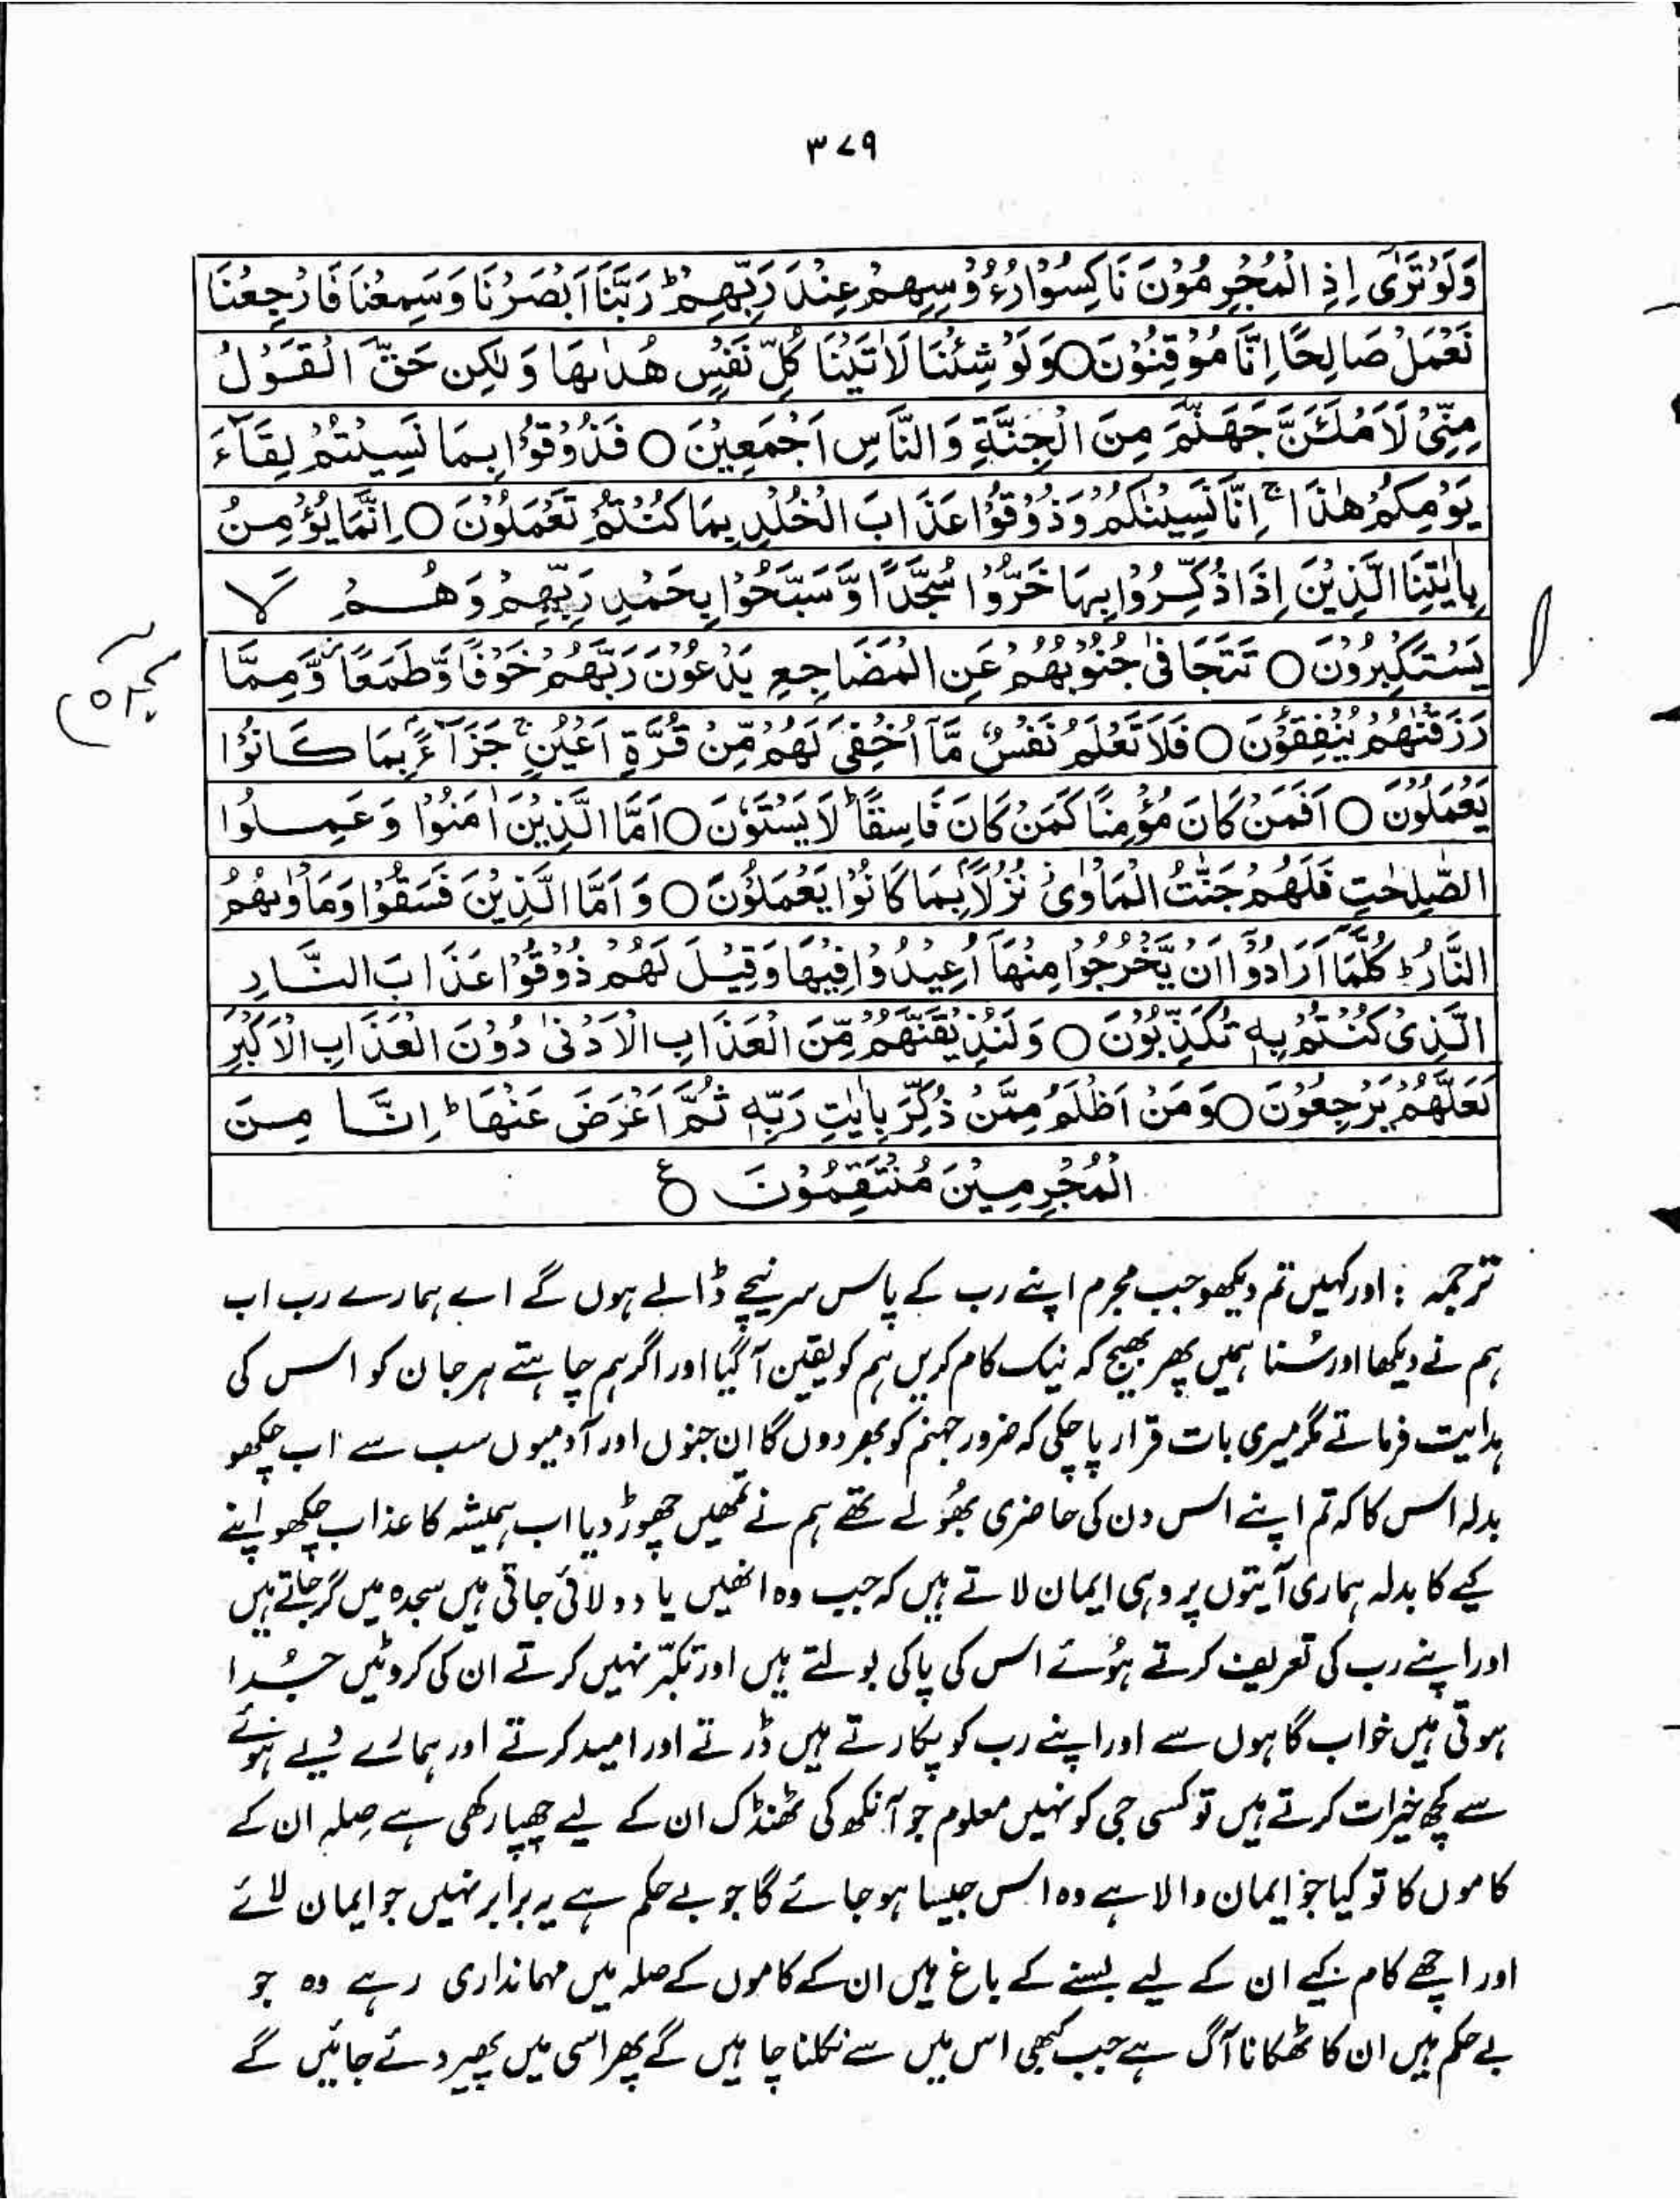 ۳۷۹
وَلَوْ تَرٰۤی اِذِ الْمُجْرِمُوْنَ نَاكِسُوْا رُءُوْسِهِمْ عِنْدَ رَبِّهِمْ ؕ رَبَّنَاۤ اَبْصَرْنَا وَسَمِعْنَا فَارْجِعْنَا
نَعْمَلْ صَالِحًا اِنَّا مُوْقِنُوْنَ ○ وَلَوْ شِئْنَا لَاٰتَیْنَا كُلَّ نَفْسٍ هُدٰىهَا وَلٰكِنْ حَقَّ الْقَوْلُ
مِنِّیْ لَاَمْلَـَٔنَّ جَهَنَّمَ مِنَ الْجِنَّةِ وَالنَّاسِ اَجْمَعِیْنَ ○ فَذُوْقُوْا بِمَا نَسِیْتُمْ لِقَآءَ
یَوْمِكُمْ هٰذَا ۚ اِنَّا نَسِیْنٰكُمْ وَذُوْقُوْا عَذَابَ الْخُلْدِ بِمَا كُنْتُمْ تَعْمَلُوْنَ ○ اِنَّمَا یُؤْمِنُ
بِاٰیٰتِنَا الَّذِیْنَ اِذَا ذُكِّرُوْا بِهَا خَرُّوْا سُجَّدًا وَّسَبَّحُوْا بِحَمْدِ رَبِّهِمْ وَهُمْ لَا
یَسْتَكْبِرُوْنَ ○ تَتَجَافٰی جُنُوْبُهُمْ عَنِ الْمَضَاجِعِ یَدْعُوْنَ رَبَّهُمْ خَوْفًا وَّطَمَعًا ؗ وَّمِمَّا
رَزَقْنٰهُمْ یُنْفِقُوْنَ ○ فَلَا تَعْلَمُ نَفْسٌ مَّاۤ اُخْفِیَ لَهُمْ مِّنْ قُرَّةِ اَعْیُنٍ ۚ جَزَآءًۢ بِمَا كَانُوْا
یَعْمَلُوْنَ ○ اَفَمَنْ كَانَ مُؤْمِنًا كَمَنْ كَانَ فَاسِقًا ؕ لَا یَسْتَوٗنَ ○ اَمَّا الَّذِیْنَ اٰمَنُوْا وَعَمِلُوا
الصّٰلِحٰتِ فَلَهُمْ جَنّٰتُ الْمَاْوٰی ؗ نُزُلًۢا بِمَا كَانُوْا یَعْمَلُوْنَ ○ وَاَمَّا الَّذِیْنَ فَسَقُوْا وَمَاْوٰىهُمُ
النَّارُ ؕ كُلَّمَاۤ اَرَادُوْۤا اَنْ یَّخْرُجُوْا مِنْهَاۤ اُعِیْدُوْا فِیْهَا وَقِیْلَ لَهُمْ ذُوْقُوْا عَذَابَ النَّارِ
الَّذِیْ كُنْتُمْ بِهٖ تُكَذِّبُوْنَ ○ وَلَنُذِیْقَنَّهُمْ مِّنَ الْعَذَابِ الْاَدْنٰی دُوْنَ الْعَذَابِ الْاَكْبَرِ
لَعَلَّهُمْ یَرْجِعُوْنَ ○ وَمَنْ اَظْلَمُ مِمَّنْ ذُكِّرَ بِاٰیٰتِ رَبِّهٖ ثُمَّ اَعْرَضَ عَنْهَا ؕ اِنَّا مِنَ
الْمُجْرِمِیْنَ مُنْتَقِمُوْنَ ○ع
ترجمہ : اور کہیں تم دیکھو جب مجرم اپنے رب کے پاس سر نیچے ڈالے ہوں گے اے ہمارے رب اب
ہم نے دیکھا اور سُنا ہمیں پھر بھیج کہ نیک کام کریں ہم کو یقین آگیا اور اگر ہم چاہتے ہر جان کو اس کی
ہدایت فرماتے مگر میری بات قرار پاچکی کہ ضرور جہنم کو بھر دوں گا ان جنوں اور آدمیوں سب سے اب چکھو
بدلہ اس کا کہ تم اپنے اس دن کی حاضری بھُولے تھے ہم نے تمھیں چھوڑ دیا اب ہمیشہ کا عذاب چکھو اپنے
کیے کا بدلہ ہماری آیتوں پر وہی ایمان لاتے ہیں کہ جب وہ انھیں یاد دلائی جاتی ہیں سجدہ میں گر جاتے ہیں
اور اپنے رب کی تعریف کرتے ہُوئے اس کی پاکی بولتے ہیں اور تکبّر نہیں کرتے ان کی کروٹیں جُدا
ہوتی ہیں خواب گاہوں سے اور اپنے رب کو پکارتے ہیں ڈرتے اور امید کرتے اور ہمارے دیے ہوئے
سے کچھ خیرات کرتے ہیں تو کسی جی کو نہیں معلوم جو آنکھ کی ٹھنڈک ان کے لیے چھپا رکھی ہے صلہ ان کے
کاموں کا تو کیا جو ایمان والا ہے وہ اس جیسا ہو جائے گا جو بے حکم ہے یہ برابر نہیں جو ایمان لائے
اور اچھے کام کیے ان کے لیے بسنے کے باغ ہیں ان کے کاموں کے صلہ میں مہمانداری رہے وہ جو
بے حکم ہیں ان کا ٹھکانا آگ ہے جب کبھی اس میں سے نکلنا چاہیں گے پھر اسی میں پھیر دئے جائیں گے